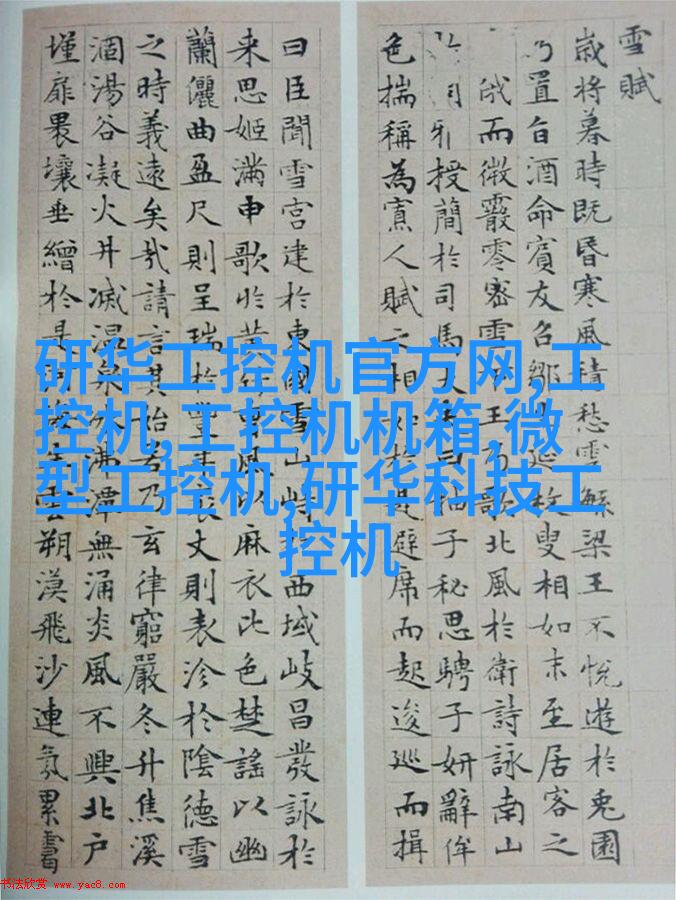 雪賦
歲將暮時既昏寒風積愁雲繁梁王不悅遊於兔園
乃置旨酒命賓友召鄒延枚叟相如末至居客之
俄而微霰零密雪下王乃歌北風於衛詩詠南山
雅授簡於司馬大夫曰抽子秘思騁子妍辭侔
色揣稱為寡人賦之相如於是避席而起逡巡而揖
曰臣聞雪宮建於東國雪山峙於西域岐昌發詠於
来思姬滿申歌於黃竹曹風以麻衣比色楚謠以幽
蘭儷曲盈尺則呈瑞於豐年袤丈則表沴於陰德雪
之時義遠矣哉請言其始若乃玄律窮嚴冬升焦溪
涸湯谷凝火井滅温泉冰沸潭無涌炎風不興北户
墐扉壤垂繒於是河海生雲朔漠飛沙連氛累靄
研华工控机官方网,工
控机,工控机机箱,微
型工控机,研华科技工
控机
书法欣赏 www.yac8.com